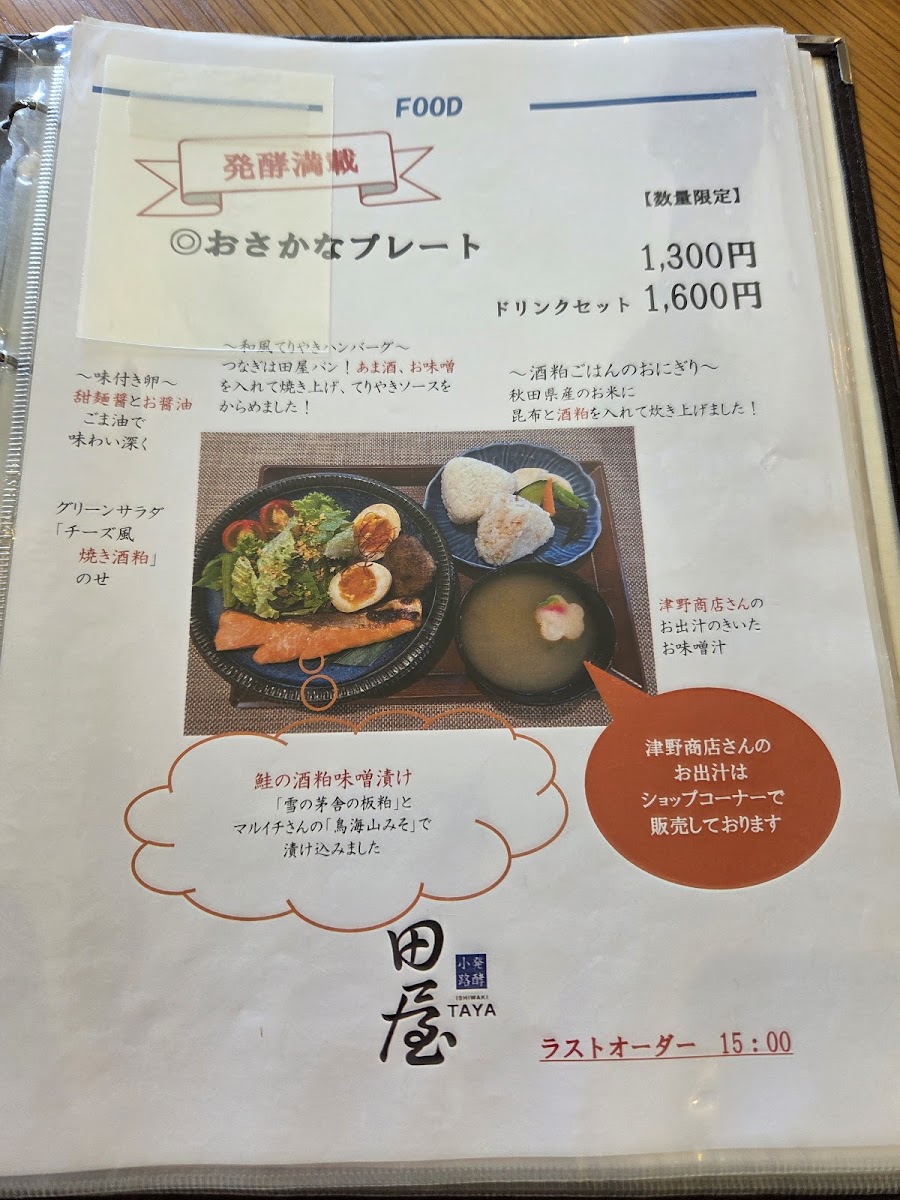 FOOD
発酵満載
【数量限定】
◎おさかなプレート
1,300円
ドリンクセット 1,600円
～味付き卵～
甜麺醤とお醤油
ごま油で
味わい深く
～和風てりやきハンバーグ～
つなぎは田屋パン！あま酒、お味噌
を入れて焼き上げ、てりやきソースを
からめました！
～酒粕ごはんのおにぎり～
秋田県産のお米に
昆布と酒粕を入れて炊き上げました！
グリーンサラダ
「チーズ風
焼き酒粕」
のせ
津野商店さんの
お出汁のきいた
お味噌汁
津野商店さんの
お出汁は
ショップコーナーで
販売しております
鮭の酒粕味噌漬け
「雪の茅舎の板粕」と
マルイチさんの「鳥海山みそ」で
漬け込みました
田屋
発酵
小路
ISHIWAKI
TAYA
ラストオーダー 15：00